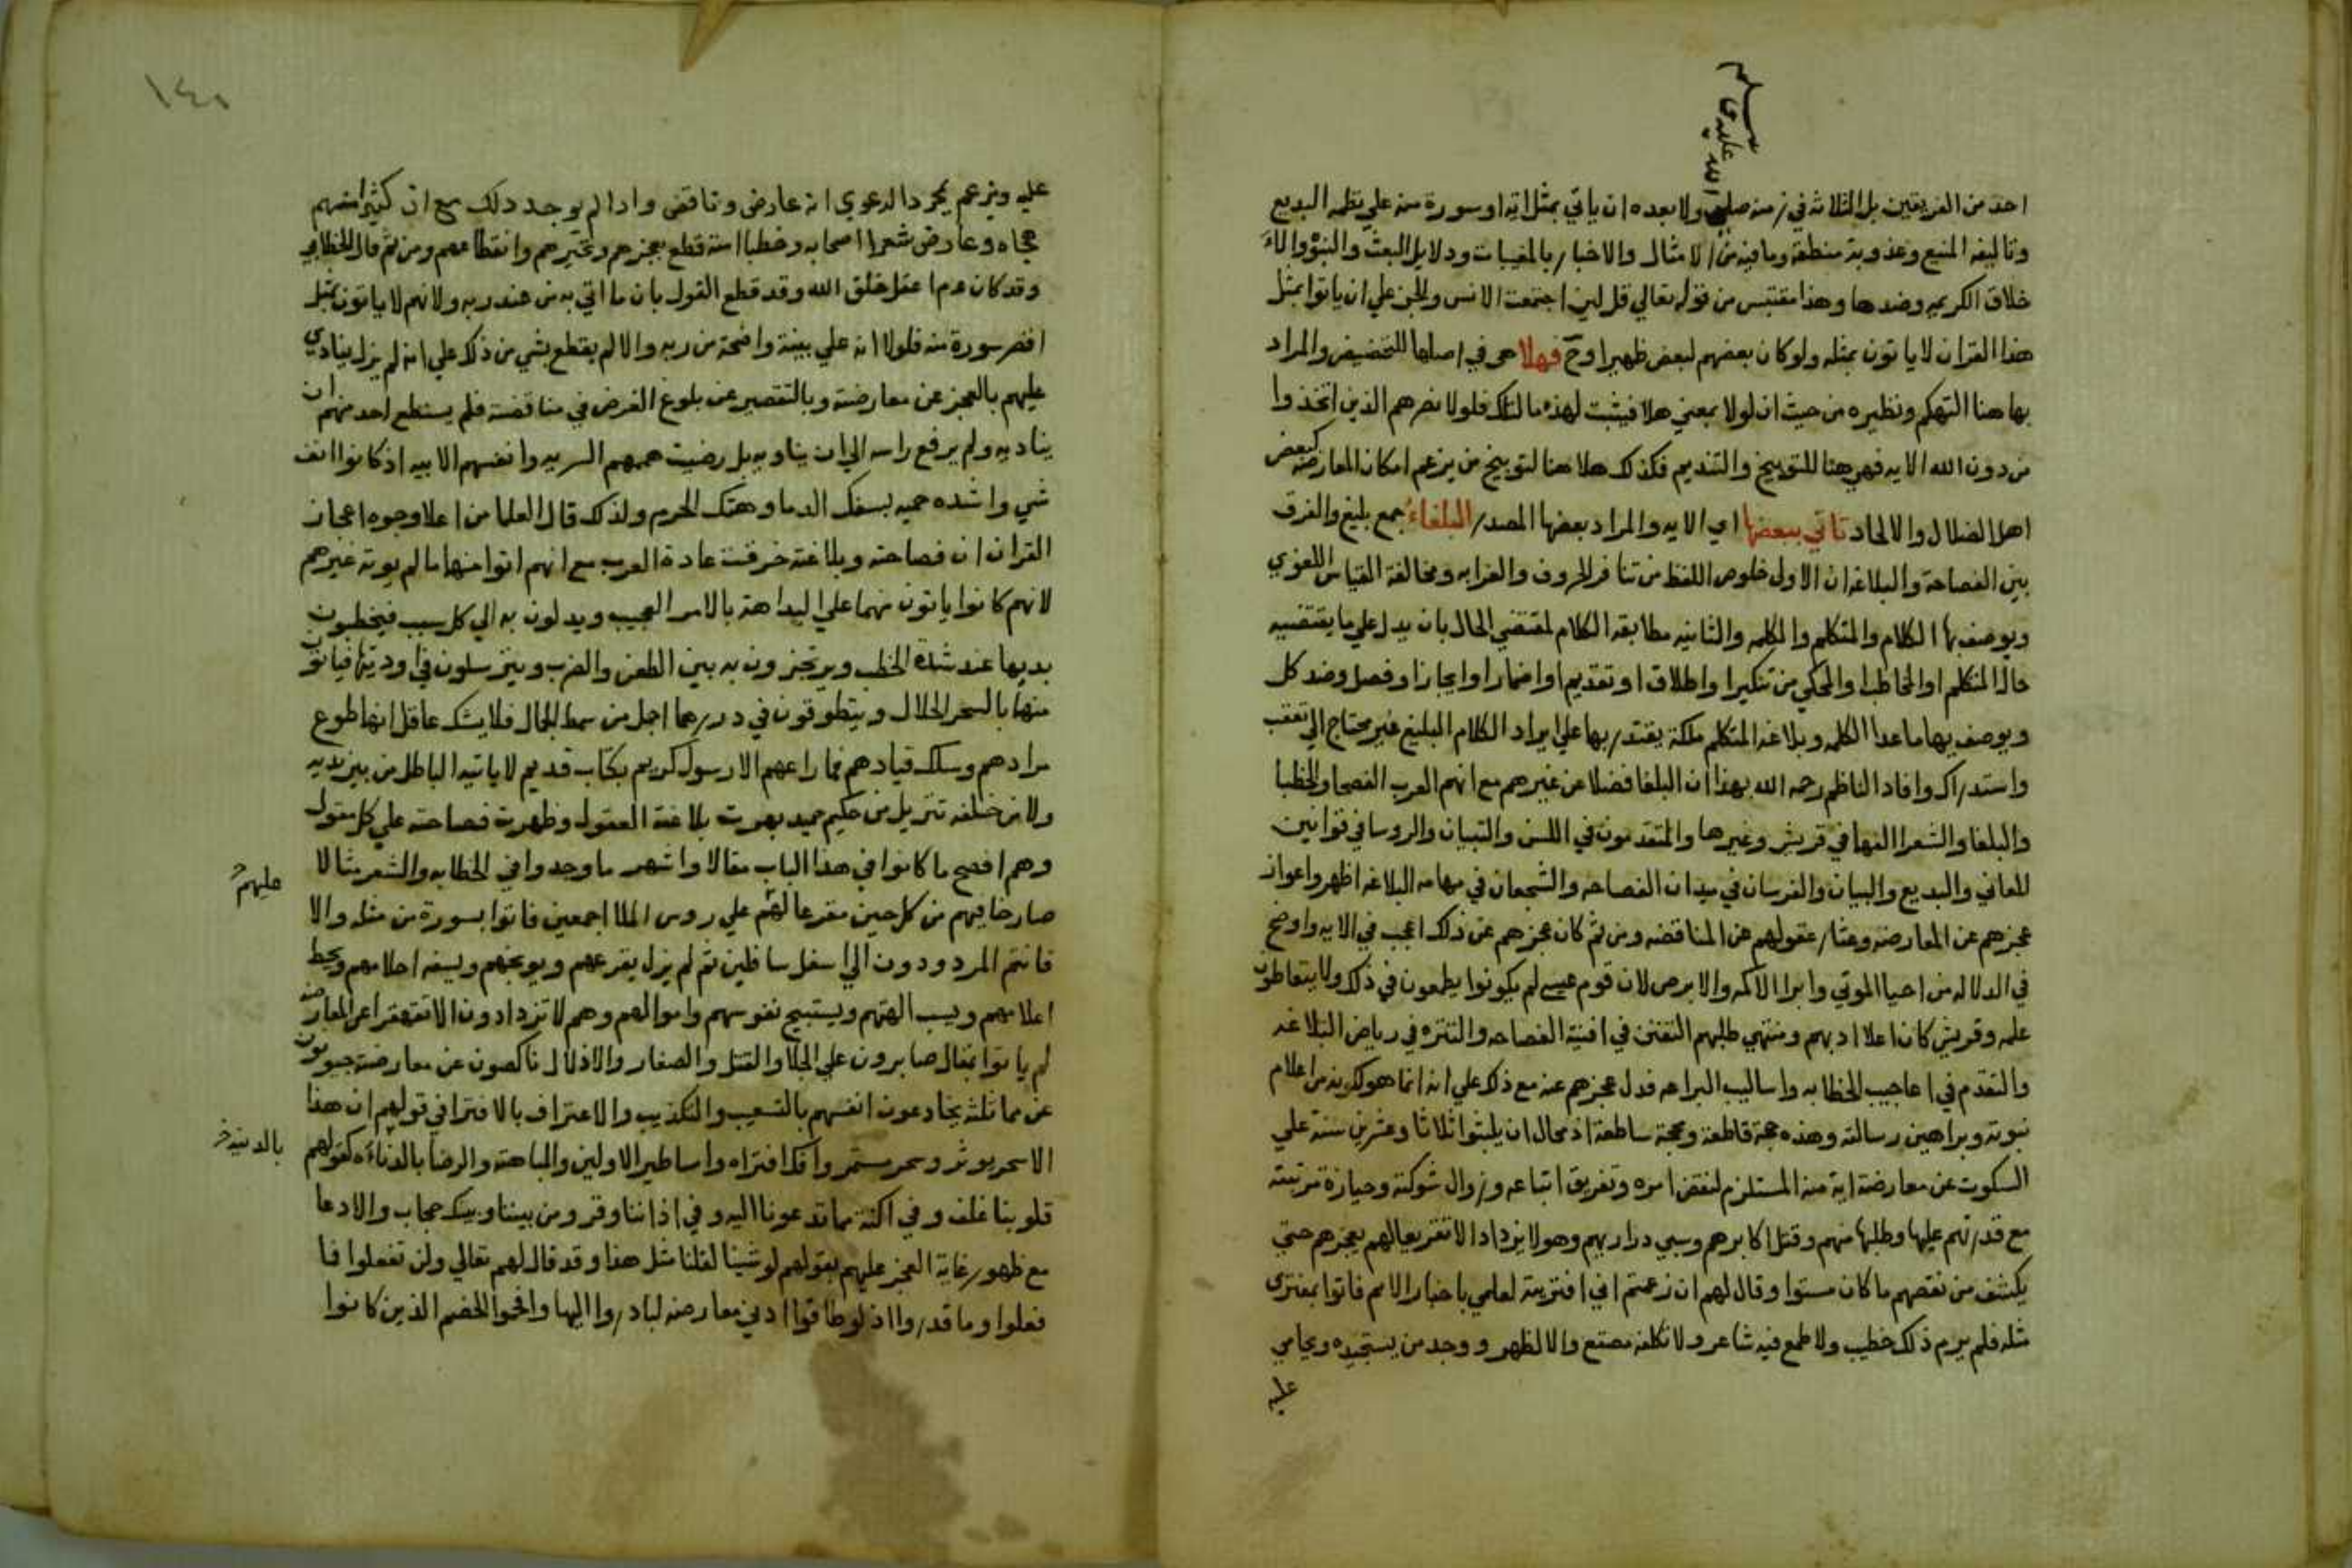 صلي الله عليه وسلم
احد من الفريقين بل الثلاثة في زمنه صلي ولا بعده ان ياتي بمثل اية او سورة منه علي نظمه البديع
وتاليفه المنيع وعذوبة منطقه وما فيه من الامثال والاخبار بالمغيبات ودلايل البعث والنبوة والا
خلاق الكريمه وضدها وهذا مقتبس من قوله تعالي قل لين اجتمعت الانس والجن علي ان ياتوا بمثل
هذا القران لا ياتون بمثله ولو كان بعضهم لبعض ظهيرا وح فهلا هي في اصلها للتخضيض والمراد
بها هنا التهكم ونظيره من حيث ان لولا بمعني هلا فيثبت لهذه ما لتلك فلولا نصرهم الذين اتخذوا
من دون الله الايه فهي هنا للتوبيخ والتنديم فكذلك هلا هنا لتوبيخ من يزعم امكان المعارضة كبعض
اهل الضلال والالحاد تاتي ببعضها اي الايه والمراد بعضها المصدر البلغاء جمع بليغ والفرق
بين الفصاحة والبلاغه ان الاول خلوص اللفظ من تنافر الحروف والغرابه ومخالفة القياس اللغوي
ويوصف بها الكلام والمتكلم والكلمه والثانيه مطابقه الكلام لمقتضي الحال بان يدل علي ما يقتضيه
حال المتكلم او المخاطب او المحكي من تنكير او اطلاق او تقديم او اضمار او ايجاز او فصل وضد كل
ويوصف بها ما عدا الكلمه وبلاغه المتكلم ملكة يقتدر بها علي ايراد الكلام البليغ غير محتاج الي تعقب
واستدراك وافاد الناظم رحمه الله بهذا ان البلغا فضلا عن غيرهم مع انهم العرب الفصحا والخطبا
والبلغا والشعرا النها في قريش وغيرها والمتقدمون في اللسن والتبيان والروسا في قوانين
المعاني والبديع والبيان والفرسان في ميدان الفصاحه والشجعان في مهامه البلاغه اظهروا عوار
عجزهم عن المعارضه وعثار عقولهم عن المناقضه ومن ثم كان عجزهم عن ذلك اعجب في الايه واوضح
في الدلاله من احيا الموتي وابرا الاكمه والابرص لان قوم عيسي لم يكونوا يطمعون في ذلك ولا يتعاطون
علمه وقريش كان اعلا ادبهم ومنتهي طلبهم التفنن في افنية الفصاحه والتنزه في رياض البلاغه
والتقدم في اعاجيب الخطابه واساليب البراعه فدل عجزهم عنه مع ذلك علي انه انما هو لكونه من اعلام
نبوته وبراهين رسالته وهذه حجة قاطعة ومحجة ساطعة اذ محال ان يلبثوا ثلاثا وعشرين سنة علي
السكوت عن معارضة اية منه المستلزم لنقض امره وتفريق اتباعه وزوال شوكته وحيازة مرتبته
مع قدرتهم عليها وطلبها منهم وقتل اكابرهم وسبي دراريهم وهو لا يزداد الا تقريعا لهم بعجزهم حتي
يكشف من نقصهم ما كان مستورا وقال لهم ان زعمتم اني افتريته لعلمي باخبار الامم فاتوا بمفتري
مثله فلم يرم ذلك خطيب ولا طمع فيه شاعر ولا تكلفه مصقع والا لظهر ووجد من يستجيده ويحامي
عليه
١٤٠
عليه ويزعم بمجرد الدعوي انه عارض وناقض واذا لم يوجد ذلك مع ان كثيرا منهم
هجاه وعارض شعرا اصحابه وخطبا امته قطع بعجزهم وتحيرهم وانقطاعهم ومن ثم قال الخطابي
وقد كان عم اعقل خلق الله وقد قطع القول بان ما اتي به من عند ربه ولانهم لا ياتون بمثل
اقصر سورة منه فلولا انه علي بينة واضحة من ربه والا لم يقطع بشي من ذلك علي انه لم يزل ينادي
عليهم بالعجز عن معارضته وبالتقصير عن بلوغ الغرض في مناقضته فلم يستطع احد منهم ان
يناديه ولم يرفع راسه الي ان يناويه بل رضيت هممهم السريه وانفسهم الابيه اذ كانوا انف
شي واشده حميه بسفك الدما وهتك الحرم ولذلك قال العلما من اعلا وجوه اعجاز
القران ان فصاحته وبلاغته خرقت عادة العرب مع انهم اتوا منها ما لم يوته غيرهم
لانهم كانوا ياتون منهما علي البداهة بالامر العجيب ويدلون به الي كل سبب فيخطبون
بديها عند شدة الخطب ويرتجزون به بين الطعن والضرب ويتزسلون في اوديتها فياتون
منها بالسحر الحلال ويتطوقون في دررهما اجل من سمط الجمال فلا يشك عاقل انها طوع
مرادهم وسلك قيادهم فما راعهم الا رسول كريم بكتاب قديم لا ياتيه الباطل من بين يديه
ولا من خلفه تنزيل من حكيم حميد بهرت بلاغته العقول وظهرت فصاحته علي كل مقول
وهم افصح ما كانوا في هذا الباب مقالا واشهر ما وجدوا في الخطابه والشعر مثالا
صارخا فيهم من كل حين مقرعا لهم علي روس الملا اجمعين فاتوا بسورة من مثله والا
عليهم
فانتم المردودون الي اسفل سافلين ثم لم يزل يقرعهم ويوبخهم ويسفه احلامهم ويحط
اعلامهم ويسب الهتهم ويستبيح نفوسهم واموالهم وهم لا تزدادون الا تقهقرا عن المعارضه
لم ياتوا بمقال صابرون علي الجلا والقتل والصغار والاذلال ناكصون عن معارضته
عن مماثلته يخادعون انفسهم بالتشعيب والتكذيب والاعتراف بالافترا في قولهم ان هذا
الا سحر يوثر وسحر مستمر وافك افتراه واساطير الاولين والمباهته والرضا بالدناءه كقولهم
بالدنيه خ
قلوبنا غلف وفي اكنة مما تدعونا اليه وفي اذاننا وقر ومن بيننا وبينك حجاب والادعا
مع ظهور غاية العجز عليهم بقولهم لو شينا لقلنا مثل هذا وقد قال لهم تعالي ولن تفعلوا فما
فعلوا وما قدروا اذ لو طاقوا ادني معارضه لبادروا اليها وافحموا الخصم الذين كانوا